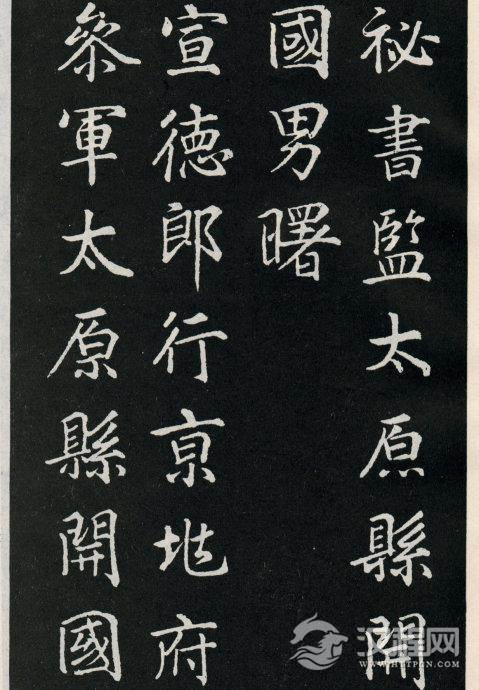 祕書監太原縣開
國男曙
宣德郎行京地府
叅軍太原縣開國
汉程网
WWW.HTTPCN.COM